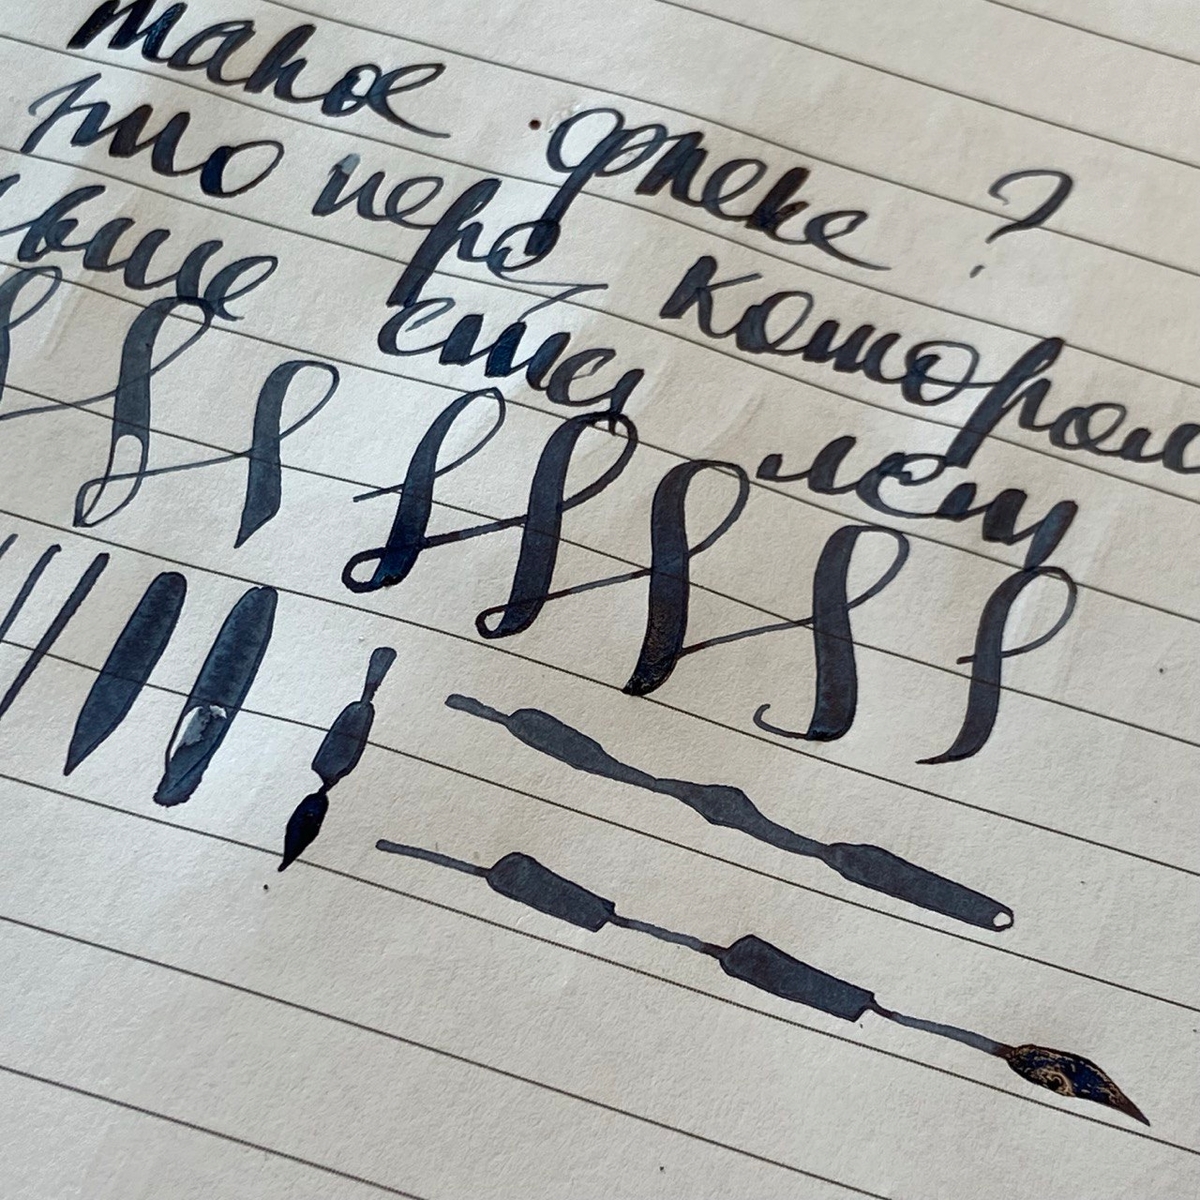 такое флекс ?
это перо котором
выше ста лет